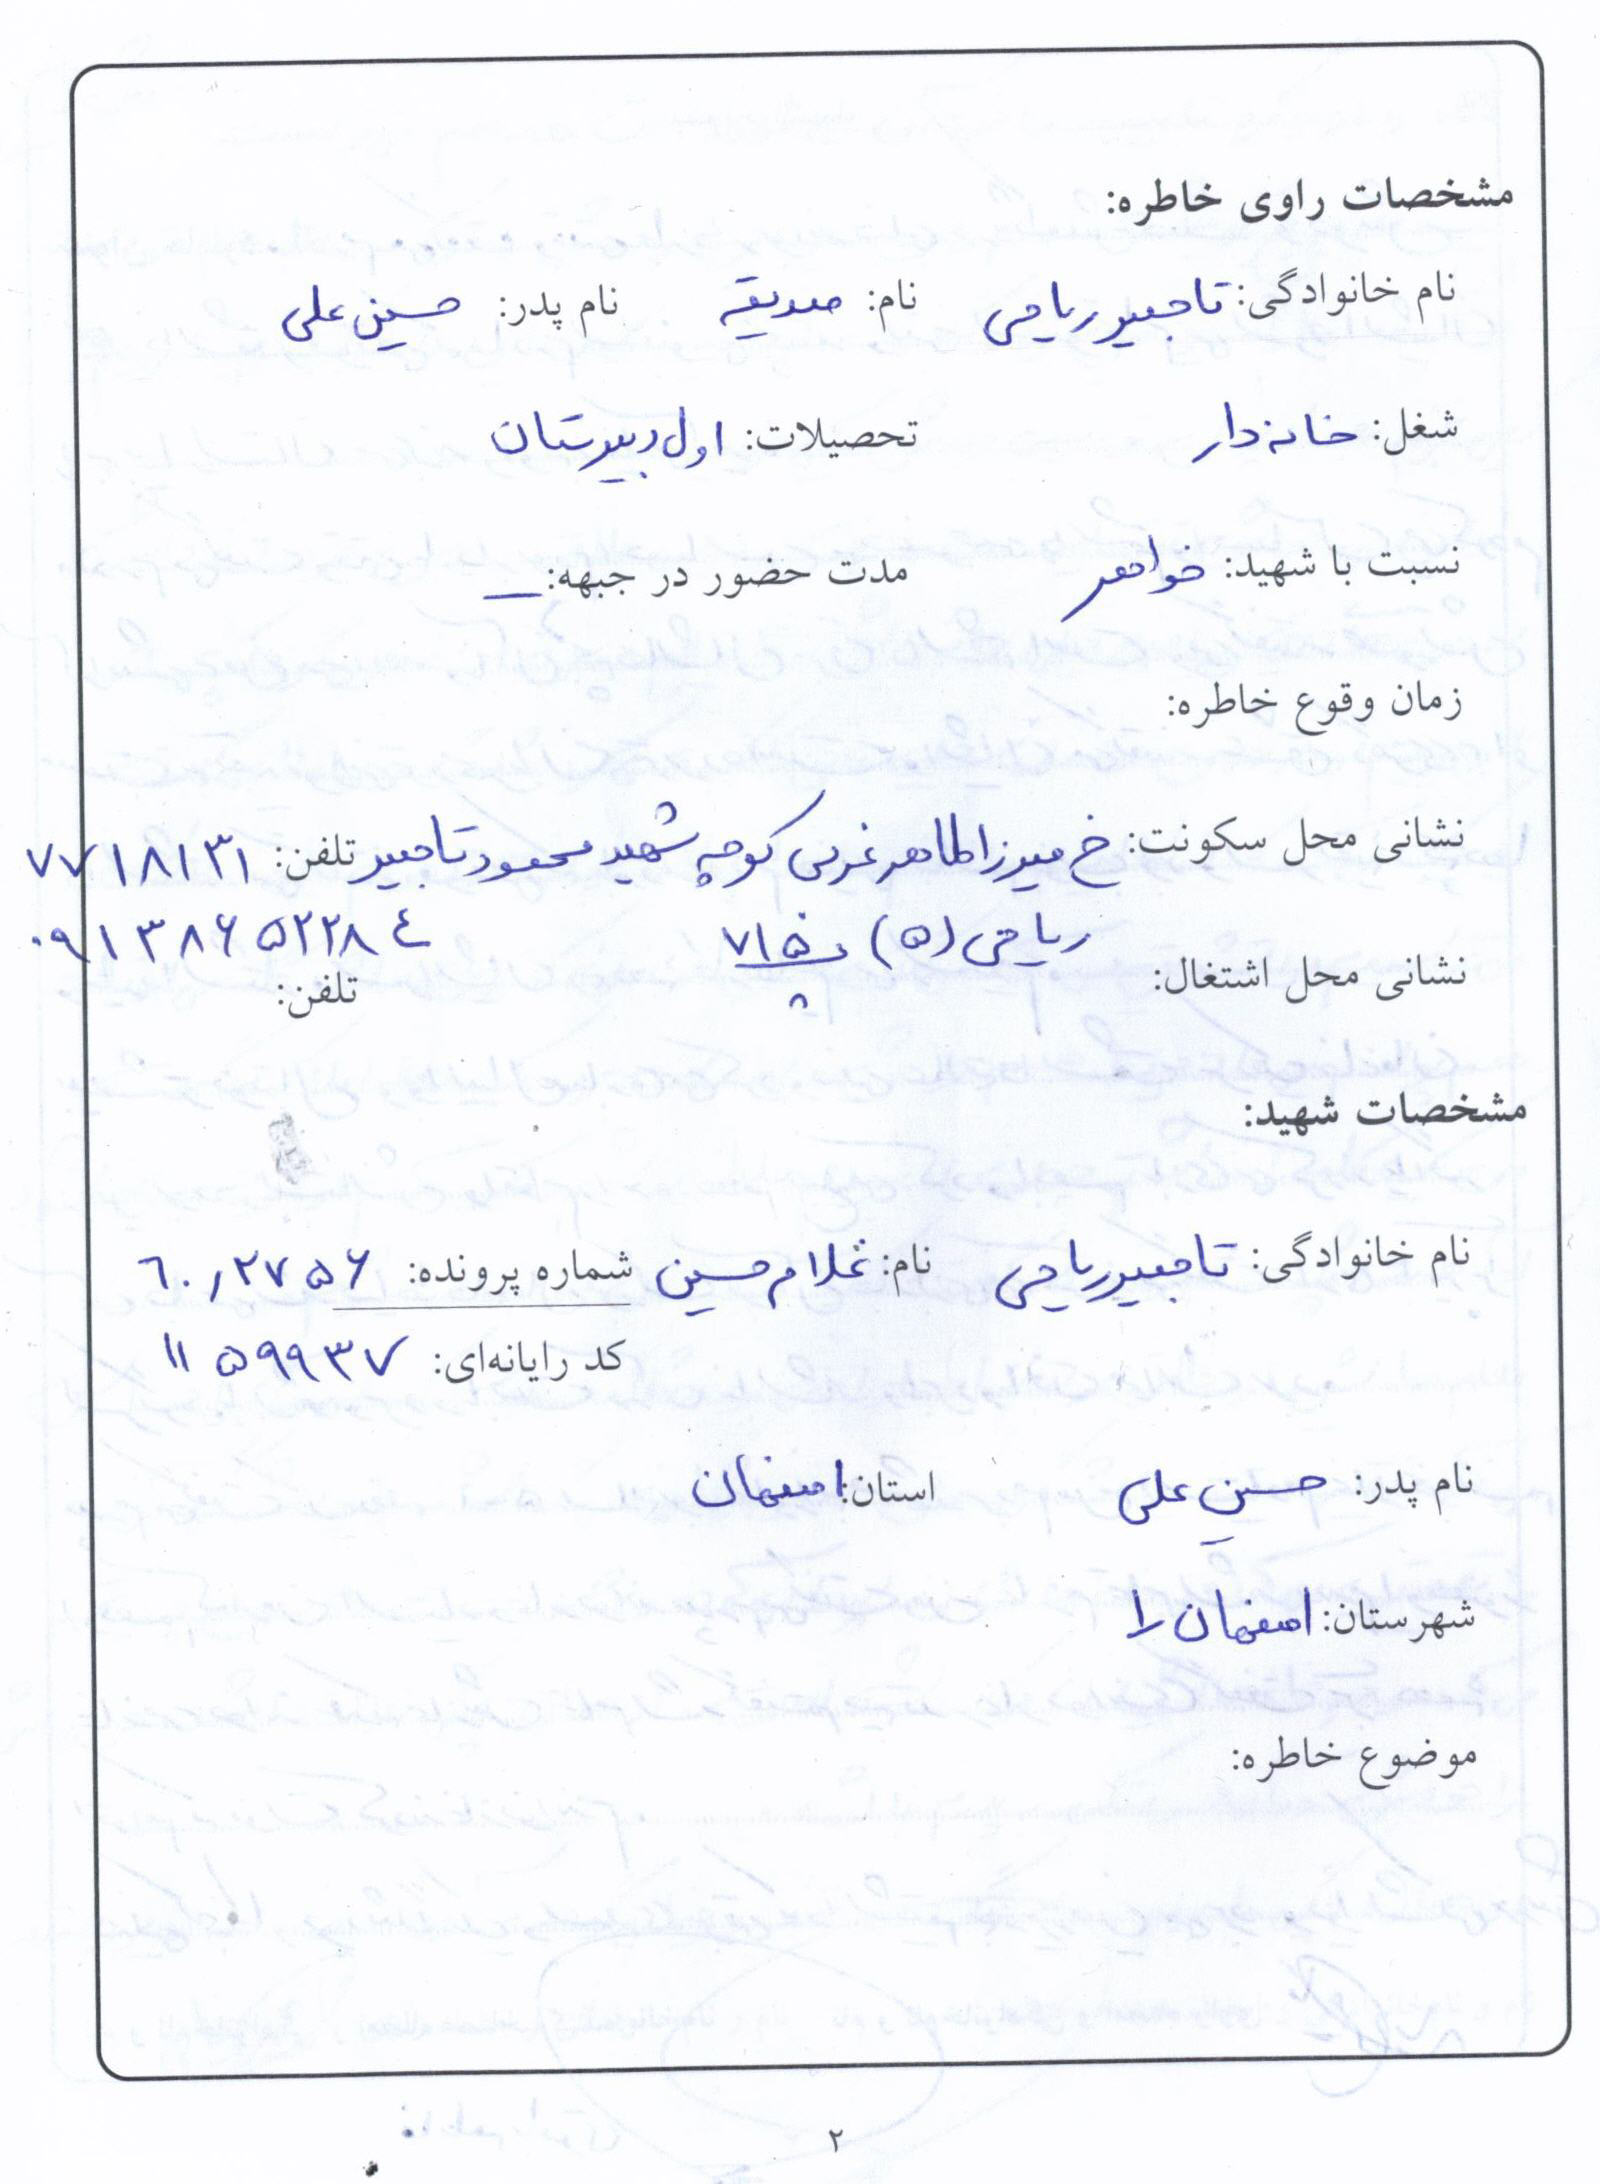 مشخصات راوی خاطره:
نام خانوادگی: تاجمیر ریاحی نام: صدیقه نام پدر: حسین علی
شغل: خانه دار تحصیلات: اول دبیرستان
نسبت با شهید: خواهر مدت حضور در جبهه: —
زمان وقوع خاطره:
نشانی محل سکونت: خ میرزا طاهر غربی کوچه شهید محمود تاجمیر تلفن: ۷۷۱۸۱۳۱
ریاحی (۵) ۷۱۵ ۰۹۱۳۸۶۵۲۲۸۴
نشانی محل اشتغال: تلفن:
مشخصات شهید:
نام خانوادگی: تاجمیر ریاحی نام: غلامحسین شماره پرونده: ۶۰,۲۷۵۶
کد رایانه‌ای: ۱۱۵۹۹۳۷
نام پدر: حسین علی استان: اصفهان
شهرستان: اصفهان ۱
موضوع خاطره:
۲